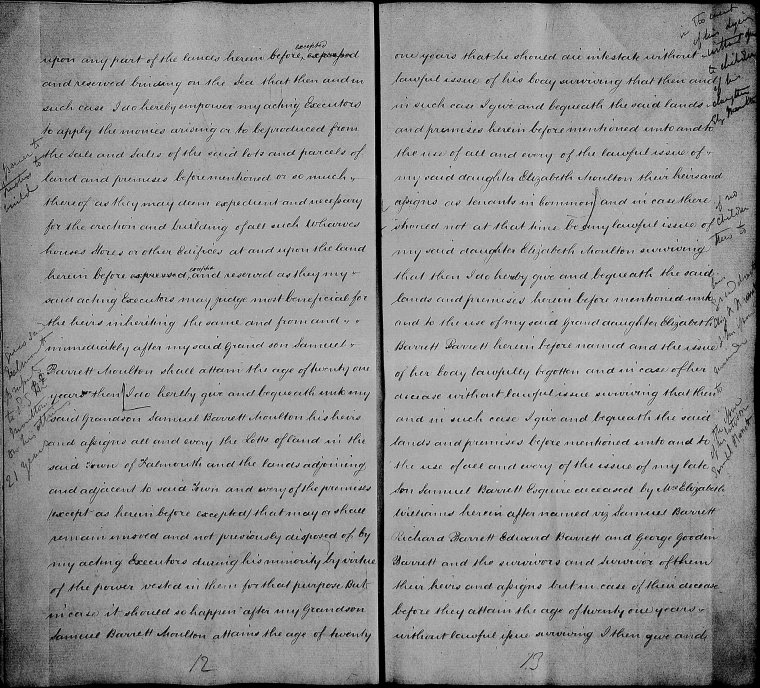 upon any part of the lands herein before, excepted expressed
and reserved binding on the Sea that then and in
such case I do hereby empower my acting Executors
to apply the monies arising or to be produced from
the Sale and Sales of the said lots and parcels of
land and premises before mentioned or so much
thereof as they may deem expedient and necessary
for the erection and building of all such Wharves
houses Stores or other Edifices at and upon the land
herein before expressed, excepted and reserved as they my
said acting Executors may judge most beneficial for
the heirs inheriting the same and from and
immediately after my said Grand son Samuel
Barrett Moulton shall attain the age of twenty one
years then I do hereby give and bequeath unto my
said Grandson Samuel Barrett Moulton his heirs
and assigns all and every the Lotts of land in the
said Town of Falmouth and the lands adjoining
and adjacent to said Town and every of the premises
(except as herein before excepted) that may or shall
remain unsold and not previously disposed of by
my acting Executors during his minority by virtue
of the power vested in them for that purpose But
in case it should so happen after my Grandson
Samuel Barrett Moulton attains the age of twenty
12
power to
build
21 years
one years that he should die intestate without
lawful issue of his body surviving that then and
in such case I give and bequeath the said lands
and premises herein before mentioned unto and to
the use of all and every of the lawful issue of
my said daughter Elizabeth Moulton their heirs and
assigns as tenants in common and in case there
should not at that time be any lawful issue of
my said daughter Elizabeth Moulton surviving
that then I do hereby give and bequeath the said
lands and premises herein before mentioned unto
and to the use of my said Grand daughter Elizabeth
Barrett Barrett herein before named and the issue
of her body lawfully begotten and in case of her
decease without lawful issue surviving that then
and in such case I give and bequeath the said
lands and premises before mentioned unto and to
the use of all and every of the issue of my late
Son Samuel Barrett Esquire deceased by Mrs Elizabeth
Williams herein after named viz Samuel Barrett
Richard Barrett Edward Barrett and George Goodin
Barrett and the survivors and survivor of them
their heirs and assigns but in case of their decease
before they attain the age of twenty one years
without lawful issue surviving I then give and
13
in the event
of his dying
to children
of his
daughter
if no
children
then to